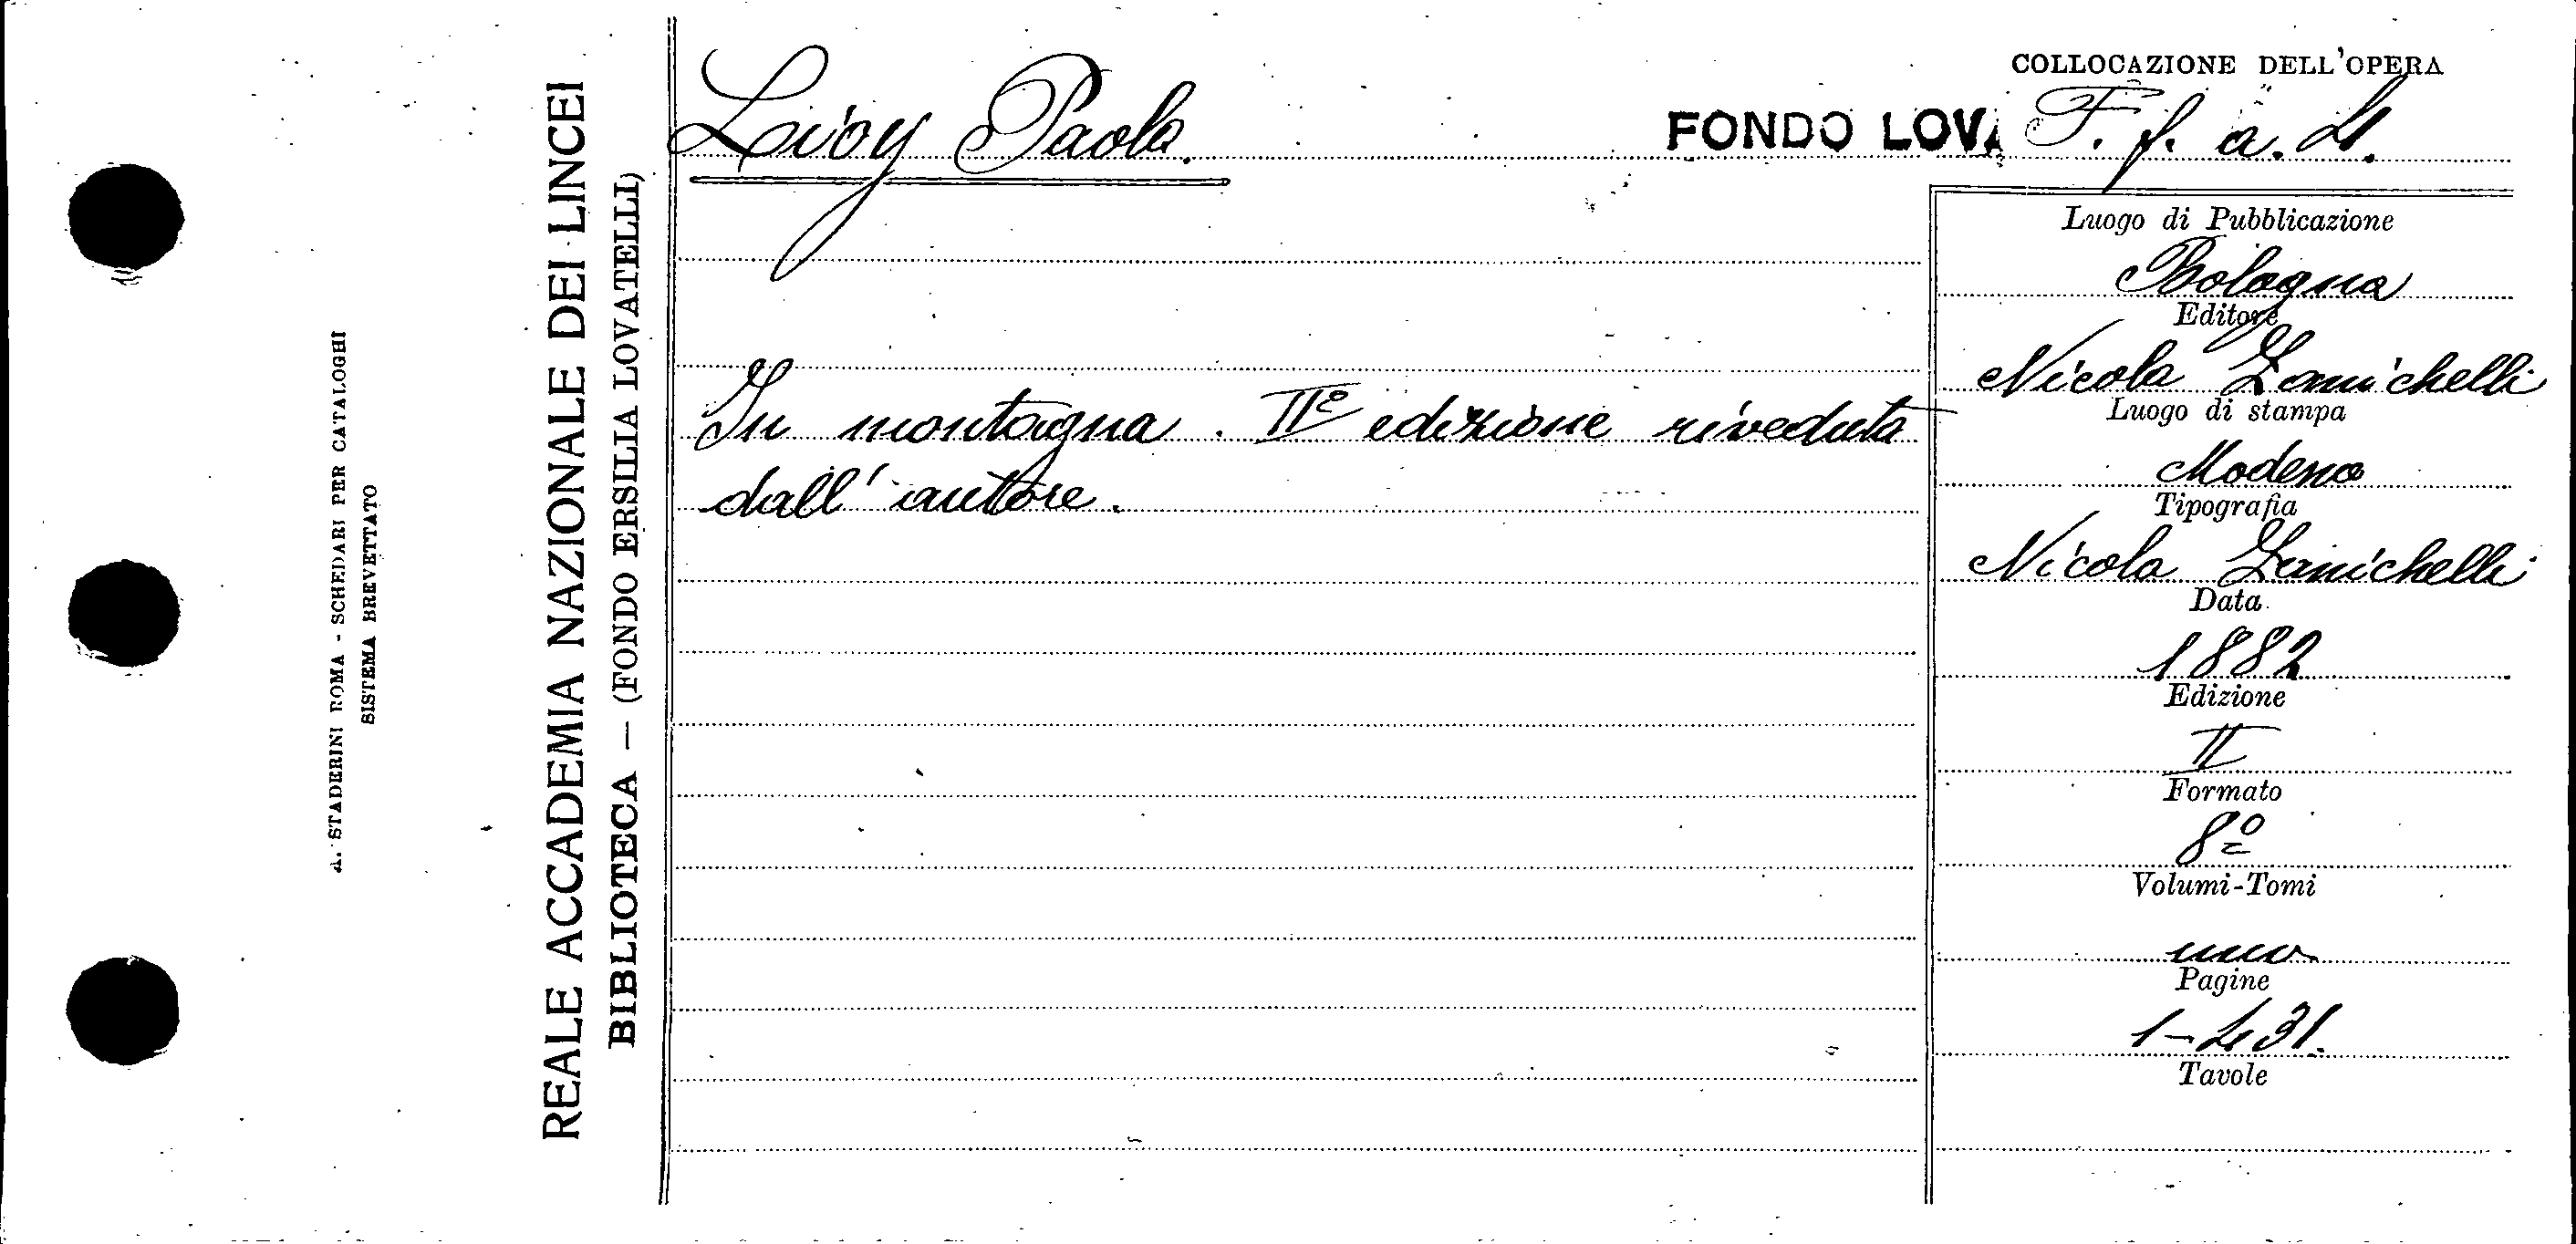 A. STADERINI ROMA - SCHEDARI PER CATALOGHI
SISTEMA BREVETTATO
REALE ACCADEMIA NAZIONALE DEI LINCEI
BIBLIOTECA — (FONDO ERSILIA LOVATELLI)
Lioy Paolo.
In montagna. IIe edizione riveduta
dall' autore.
COLLOCAZIONE DELL'OPERA
FONDO LOVA F. f. a. 4.
Luogo di Pubblicazione
Bologna
Editore
Nicola Zanichelli
Luogo di stampa
Modena
Tipografia
Nicola Zanichelli
Data
1882
Edizione
II
Formato
8º
Volumi-Tomi
uno
Pagine
1-431.
Tavole